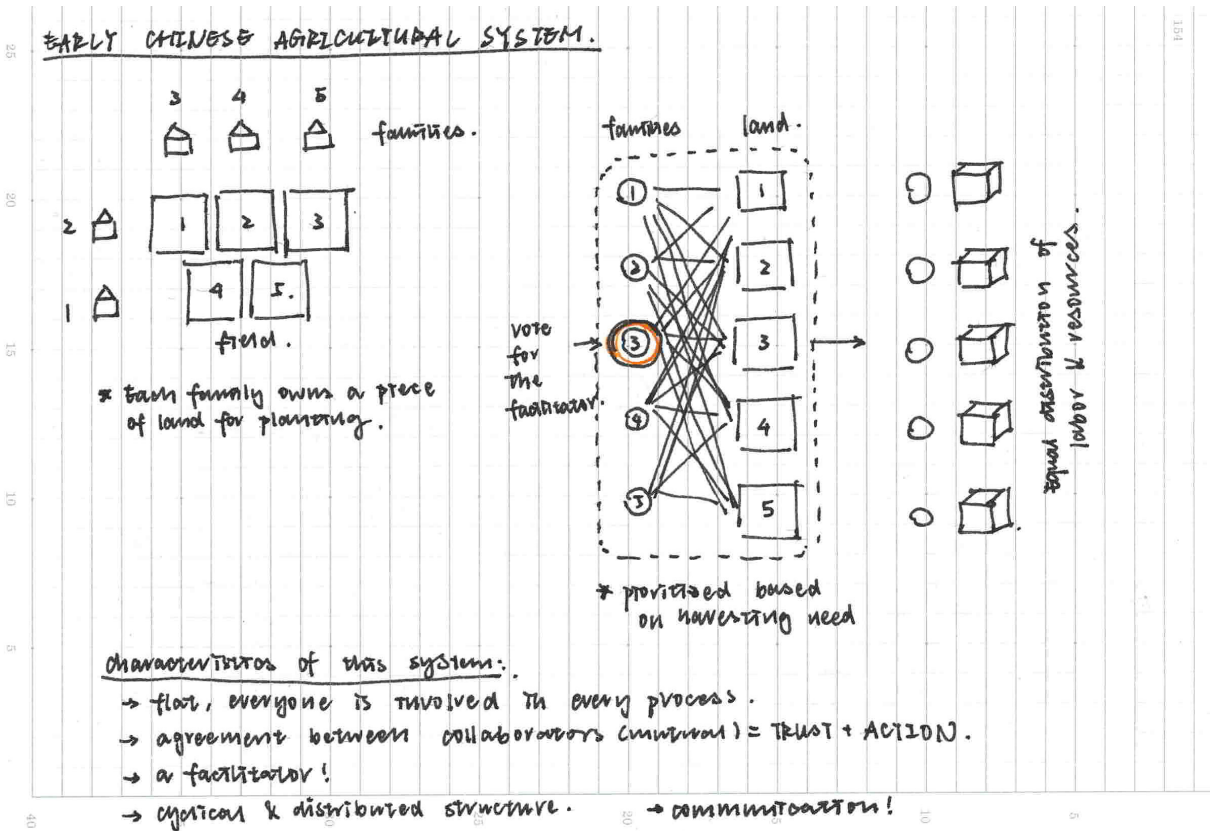 EARLY CHINESE AGRICULTURAL SYSTEM.
3 4 5
families.
2
1 2 3
1
4 5.
field.
* Each family owns a piece
of land for planting.
families land.
1 1
2 2
3 3
4 4
5 5
vote
for
the
facilitator.
* prioritized based
on harvesting need
Equal distribution of
labor & resources.
characteristics of this system:
→ flat, everyone is involved in every process.
→ agreement between collaborators (mutual) = TRUST + ACTION.
→ a facilitator!
→ cyclical & distributed structure. → communication!
25
20
15
10
5
40
25
20
10
5
154